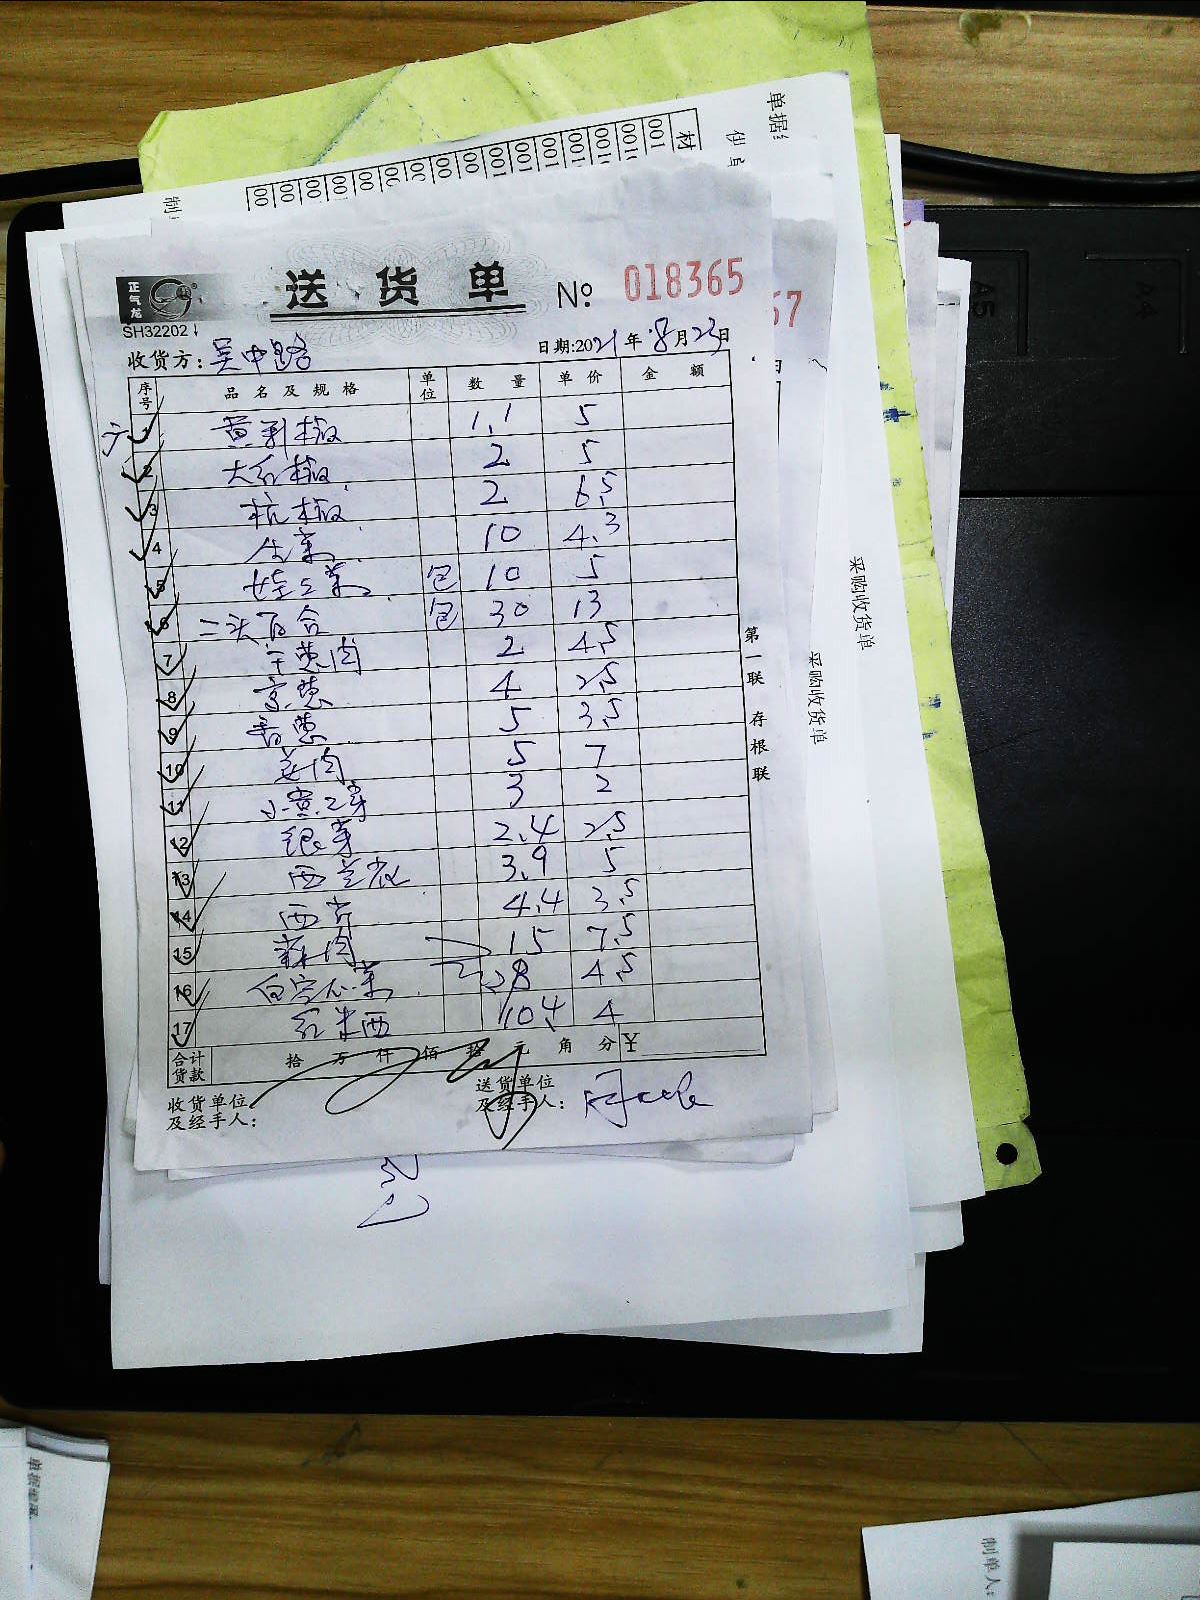 单据
材
001
001
001
001
001
001
00
00
00
00
00
00
00
制
正气龙
SH32202
送货单
№
018365
57
收货方：吴中路
日期:2021年8月23日
序号 品名及规格 单位 数量 单价 金额
1 黄彩椒 1.1 5
2 大红椒 2 5
3 杭椒 2 6.5
4 生菜 10 4.3
5 娃娃菜 包 10 5
6 二头百合 包 30 13
7 干葱肉 2 4.5
8 京葱 4 2.5
9 香葱 5 3.5
10 姜肉 5 7
11 小黄豆芽 3 2
12 银芽 2.4 2.5
13 西兰花 3.9 5
14 西芹 4.4 3.5
15 蒜肉 15 7.5
16 28 4.5
17 红米西 10.4 4
合计货款 拾万仟佰拾元角分 ¥
收货单位及经手人：
送货单位及经手人：
第一联 存根联
采购收货单
采购收货单
A5
A4
制单人: